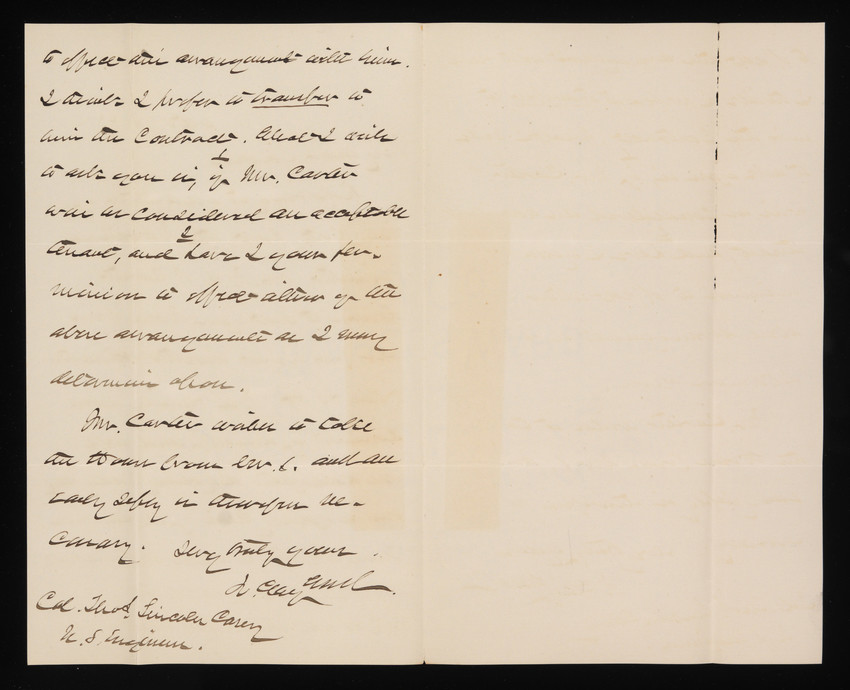 to effect this arrangement with him.
I think I prefer to transfer to
him the Contract. What I wish
to ask you is, 1 if Mr. Carter
will be considered an acceptable
tenant, and 2 have I your per-
mission to effect either of the
above arrangements as I may
determine upon.
Mr. Carter wishes to take
the House from
early reply is therefore ne-
cessary. Very truly yours.
Clay
Col. Thos. Lincoln Casey
U. S. Engineers.